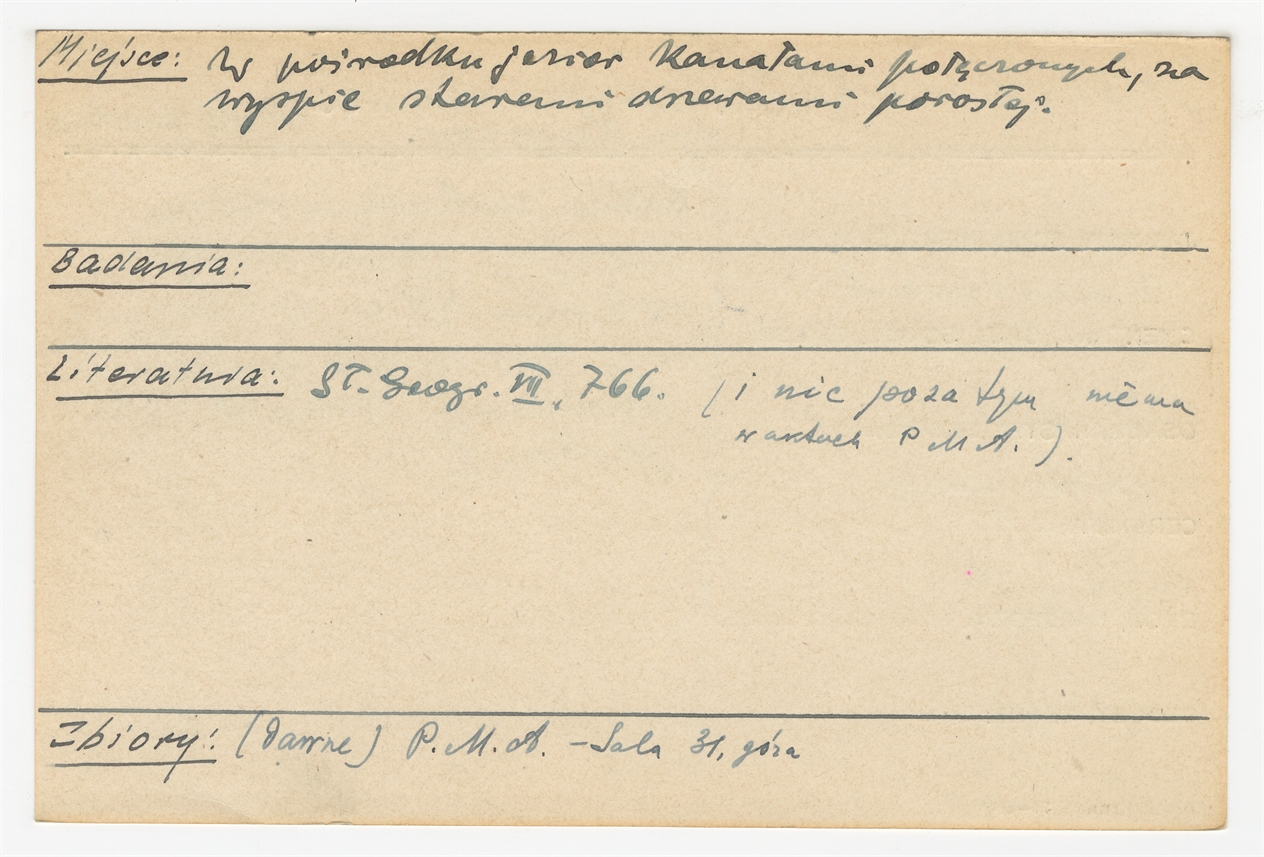 Miejsce: w pośrodku jezior kanałami połączonych, na
wyspie staremi drzewami porosłej.
Badania:
Literatura: Sł. Geogr. VII, 766. (i nic poza tym niema
w aktach P M A.).
Zbiory: (Dawne) P. M. A. – Sala 31, góra